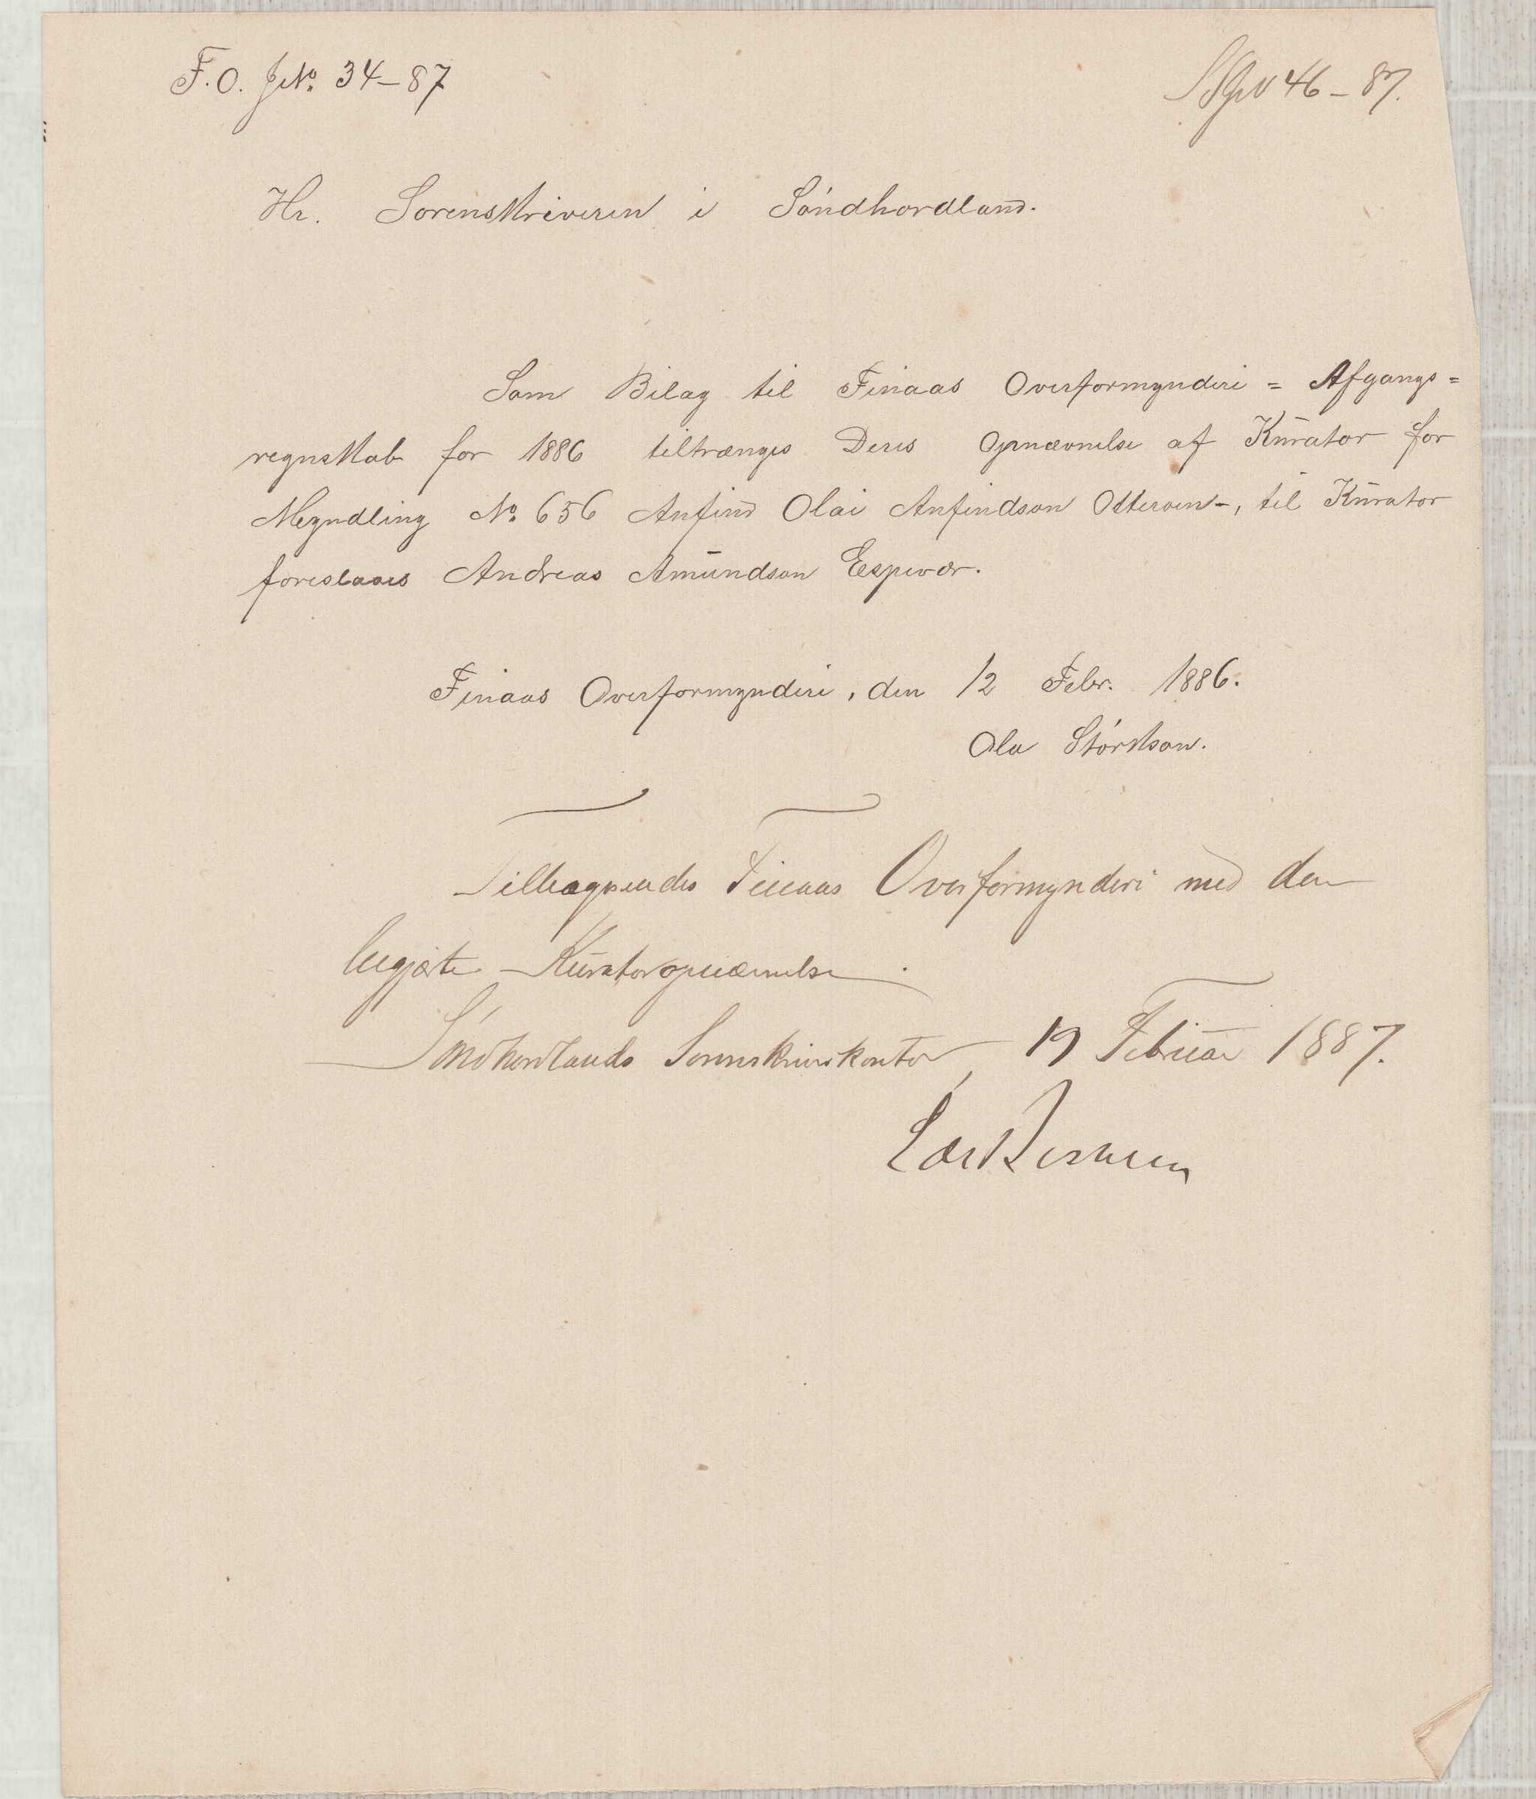 F. O. J.No. 34-87
46-87.
Hr. Sorenskriveren i Søndhordland.
Som Bilag til Finaas Overformynderi = Afgangs=
regnskab for 1886 tiltrænges Deres Opnævnelse af Kurator for
Myndling No. 656 Anfind Olai Anfindson Otterøen-, til Kurator
foreslaaes Andreas Amundson Espevær.
Finaas Overformynderi, den 12 Febr. 1886.
Ola Størkson.
Tilbagesendes Finaas Overformynderi med den
begjærte Kuratoropnævnelse.
Søndhordlands Sorenskriverkontor, 19 Februar 1887.